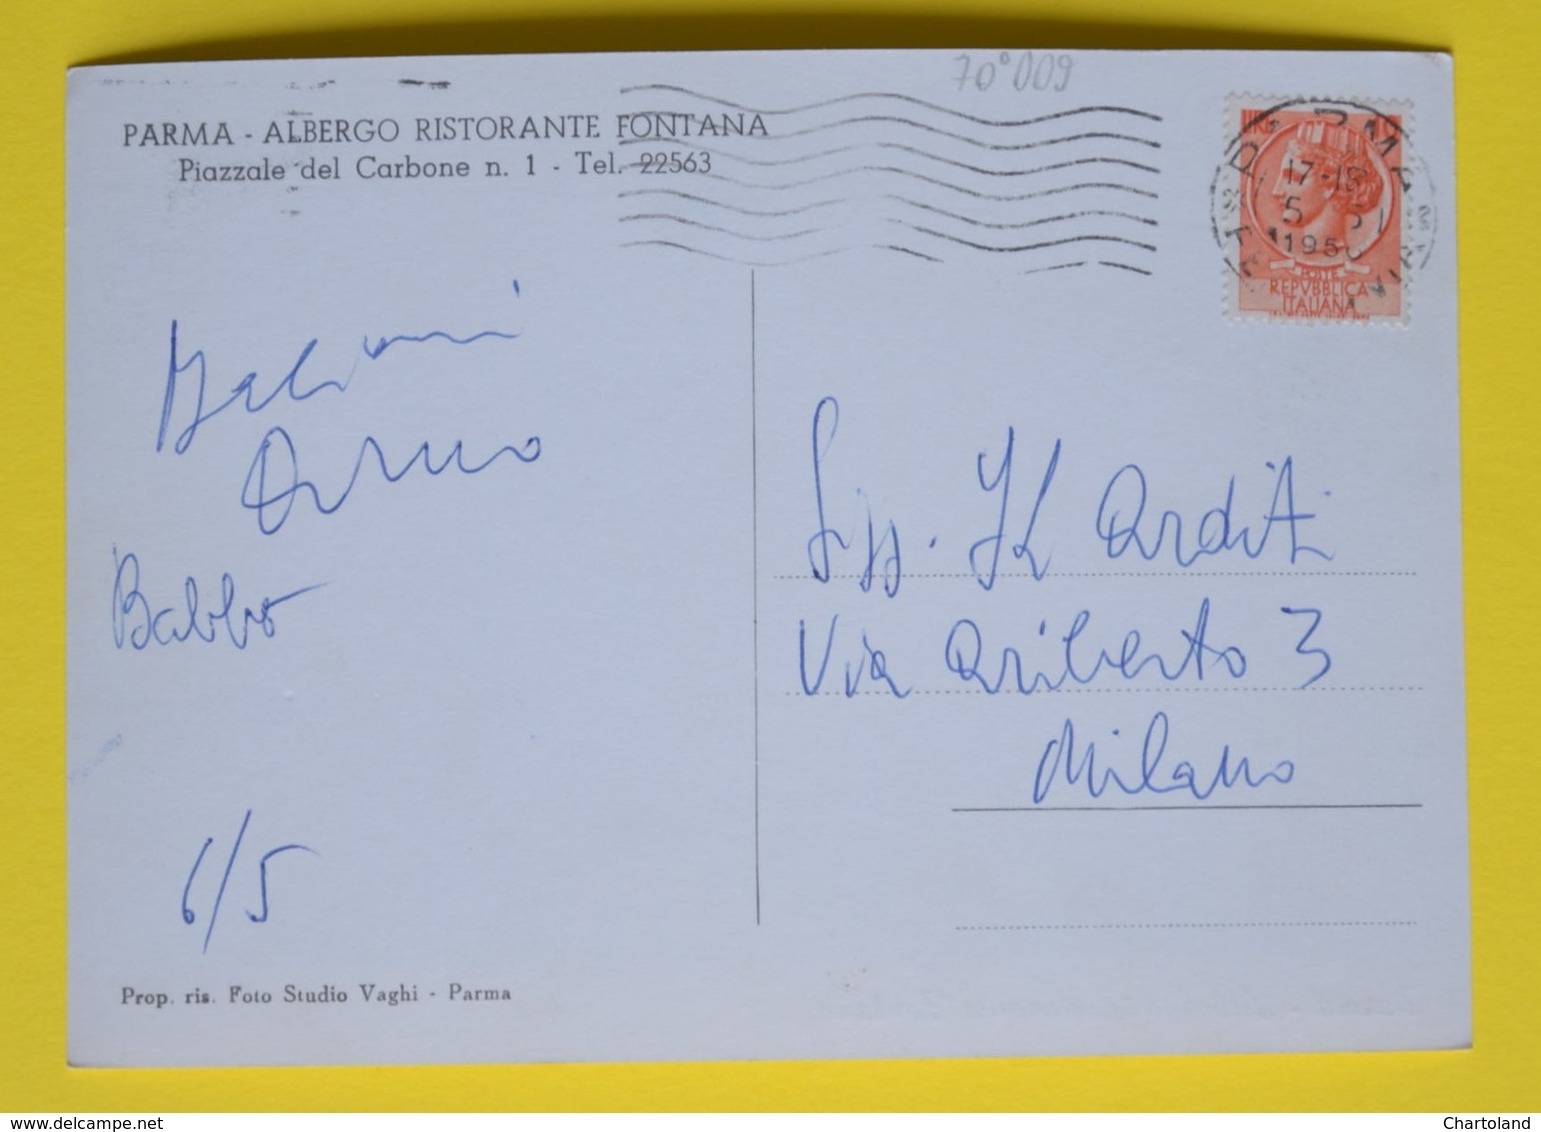 70°009
PARMA - ALBERGO RISTORANTE FONTANA
Piazzale del Carbone n. 1 - Tel. 22563
PARMA
17-18
5 5
195
POSTE
REPVBBLICA
ITALIANA
Babbo
6/5
Arditi
Via Ariberto 3
Milano
Prop. ris. Foto Studio Vaghi - Parma
www.delcampe.net
Chartoland